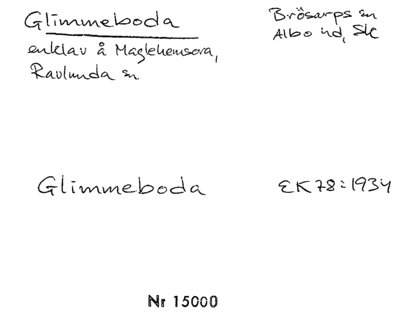 Glimmeboda
Brösarps sn
Albo hd, Sk
enklav å Maglehemsora,
Ravlunda sn
Glimmeboda
EK 78:1934
Nr 15000